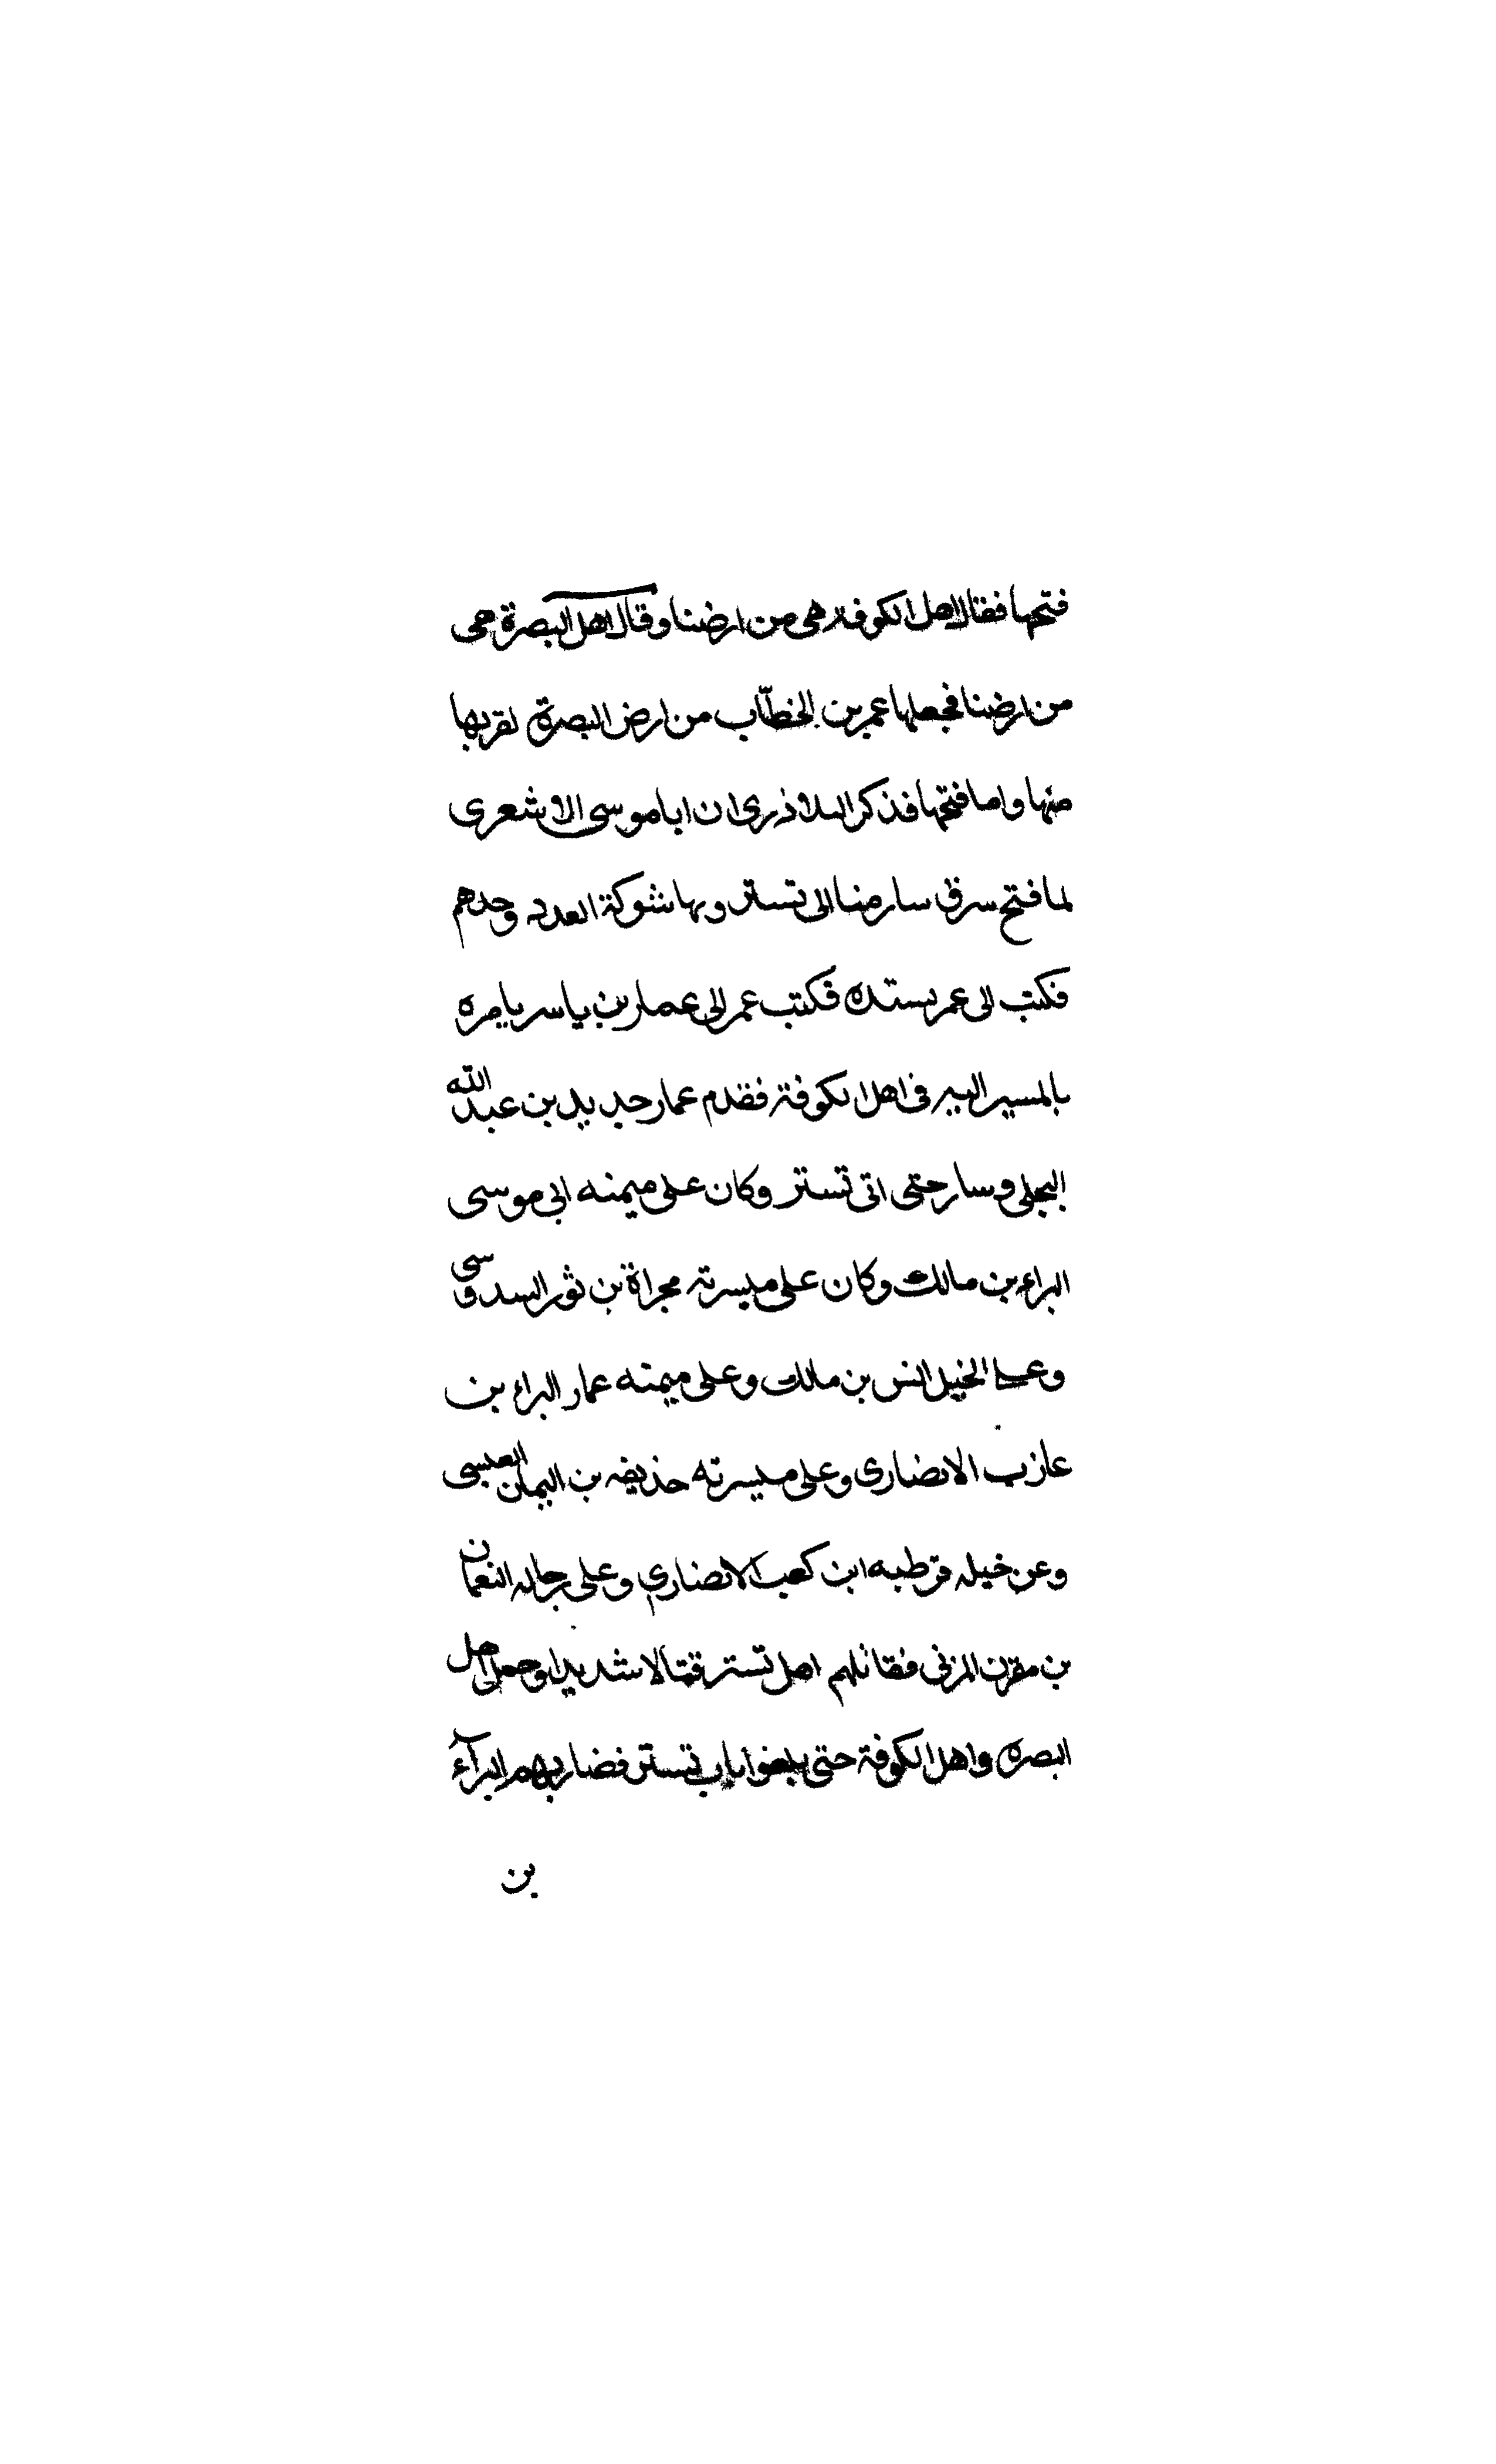 فتحها فقال اهل الكوفة هى من ارضنا وقال اهل البصرة هى
من ارضنا فجعلها عمر بن الخطّاب من ارض البصرة لقربها
منها واما فتحها فذكر البلاذرى ان ابا موسى الاشعرى
لما فتح سرق سار منها الى تستر وبها شوكة العدد وحدهم
فكتب الى عمر يستمده فكتب عمر الى عمار بن ياسر يامره
بالمسير اليه فى اهل الكوفة فقدم عمار جديد بن عبد الله
البجلى وسار حتى اتى تستر وكان على ميمنه ابى موسى
البراء بن مالك وكان على ميسرته مجراة بن ثور السدوسى
وعلى الخيل انس بن مالك وعلى ميمنه عمار البراء بن
عازب الانصارى وعلى ميسرته حذيفه بن اليمان العبسى
وعن خيله قرطبه ابن كعب الانصارى وعلى رجاله النعمان
بن مقرن المزنى فقاتلهم اهل تستر قتالا شديدا وحمل اهل
البصره واهل الكوفة حتى بلغوا باب تستر فضاربهم البرآء
بن